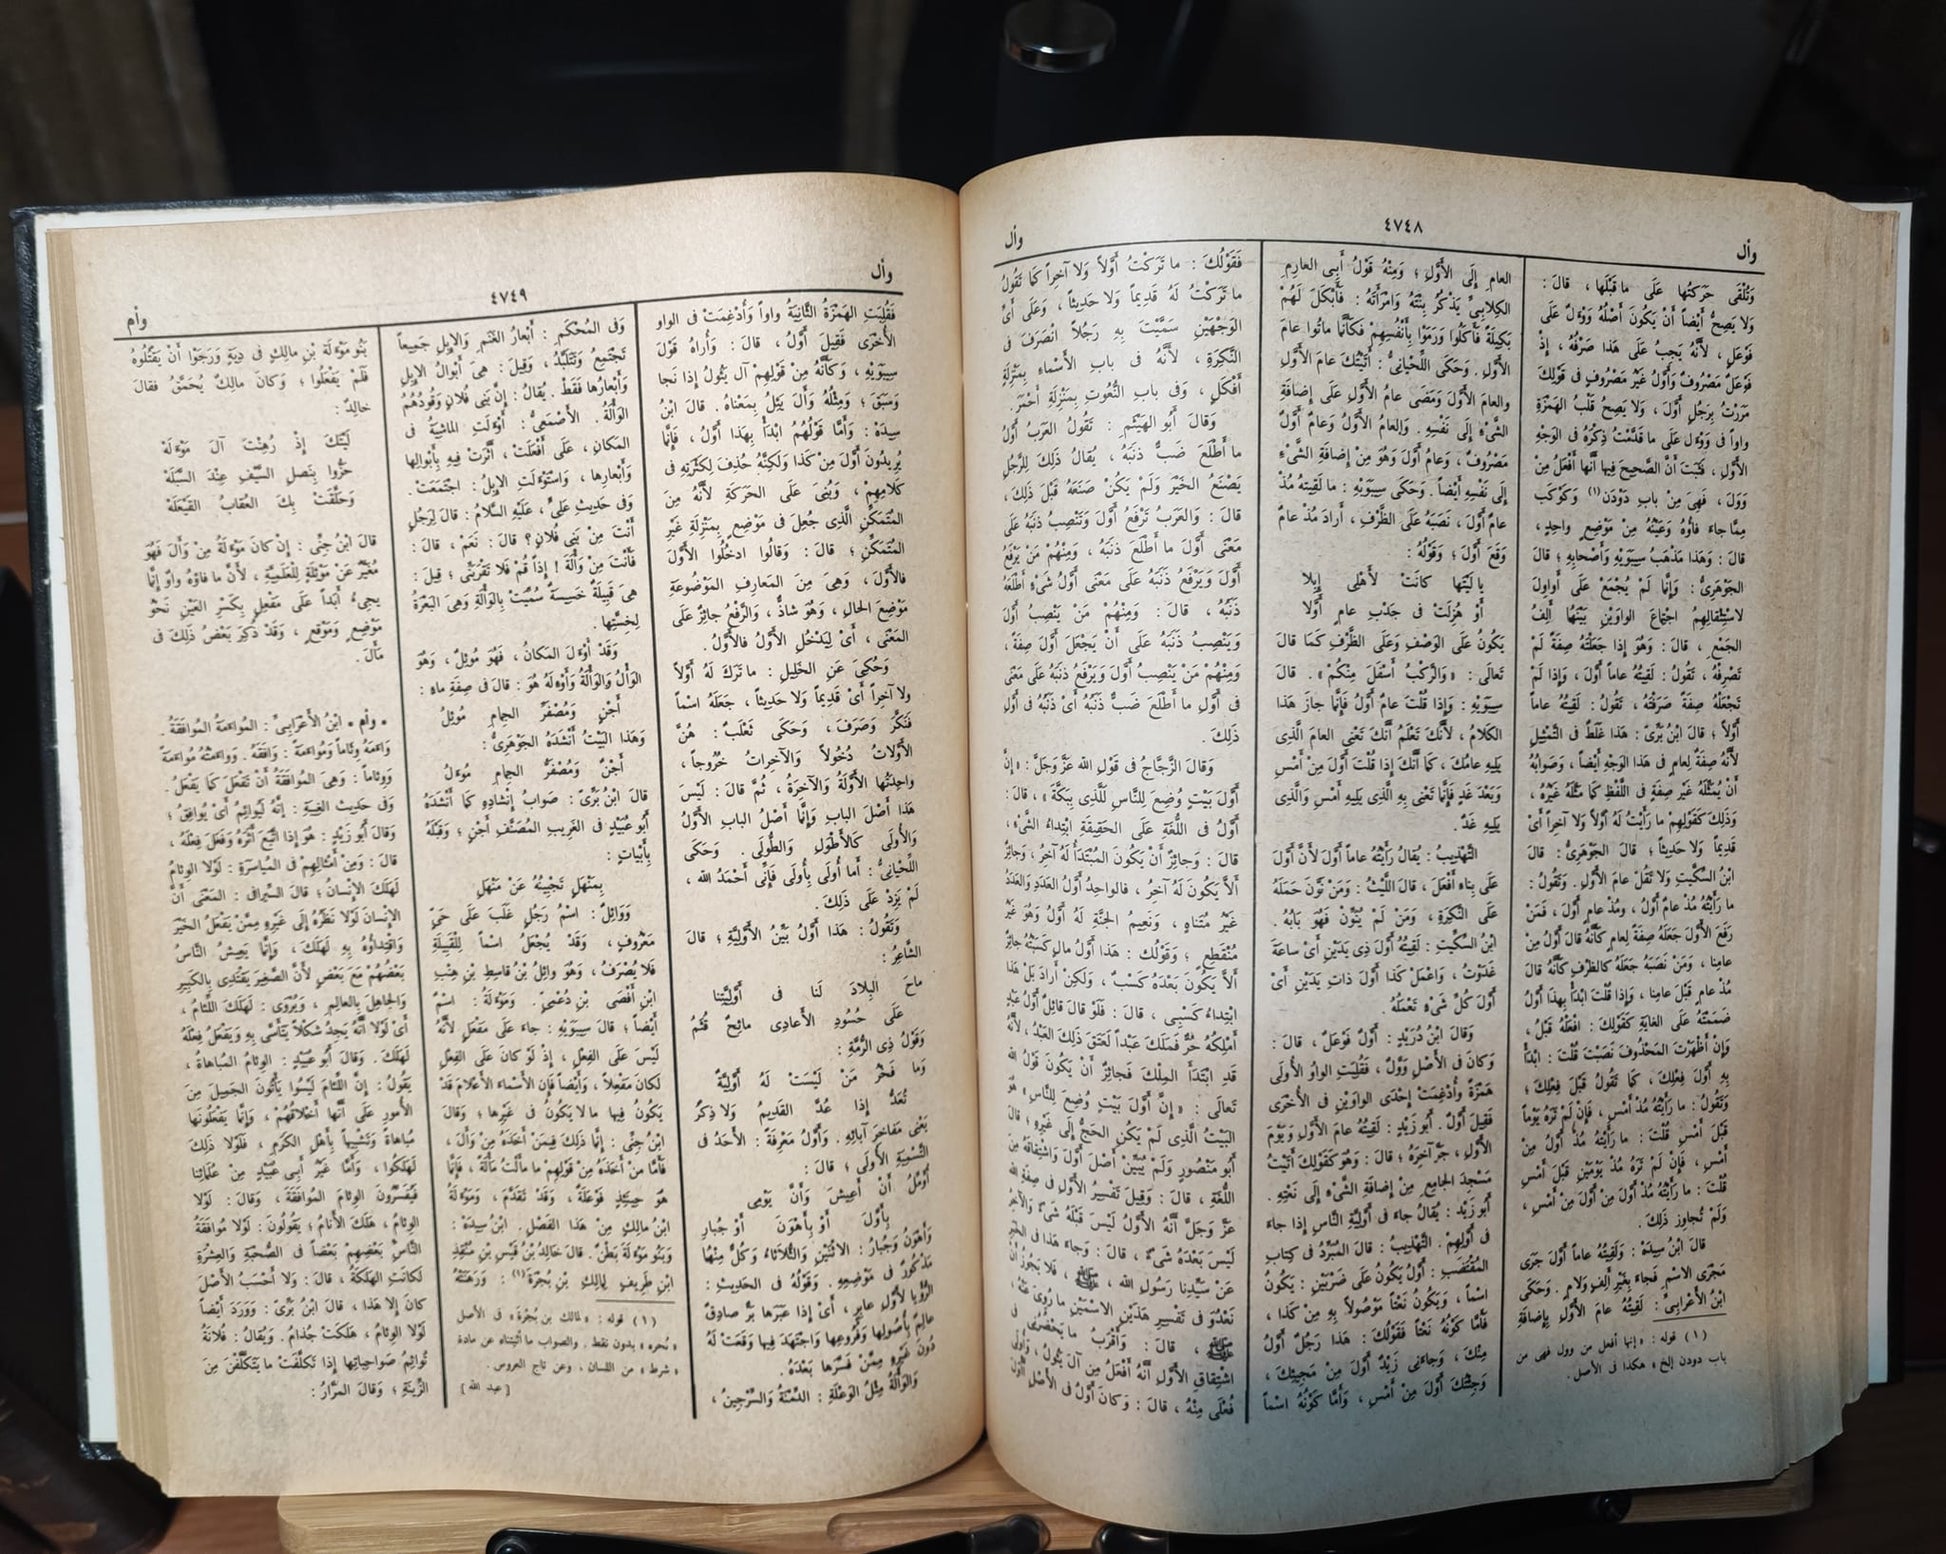 وأل
٤٧٤٨
وأل
وَتُلْقَى حَرَكَتُها عَلَى ما قَبْلَها ، قالَ :
وَلا يَصِحُّ أَيْضاً أَنْ يَكُونَ أَصْلُهُ وَوْءَلَ عَلَى
فَوْعَلٍ ، لأَنَّهُ يَجِبُ عَلَى هَذا صَرْفُهُ ، إِذْ
فَوْعَلٌ مَصْرُوفٌ وَأَوَّلُ غَيْرُ مَصْرُوفٍ فى قَوْلِكَ
مَرَرْتُ بِرَجُلٍ أَوَّلَ ، وَلا يَصِحُّ قَلْبُ الهَمْزَةِ
واواً فى وَوْءَلَ عَلَى ما قَدَّمْتُ ذِكْرَهُ فى الوَجْهِ
الأَوَّلِ ، فَثَبَتَ أَنَّ الصَّحِيحَ فِيها أَنَّها أَفْعَلُ مِنْ
وَوَلَ ، فَهِىَ مِنْ بابِ دَوْدَن (١) وَكَوْكَبٍ
مِمَّا جاءَ فاؤُهُ وَعَيْنُهُ مِنْ مَوْضِعٍ واحِدٍ ،
قالَ : وَهَذا مَذْهَبُ سِيبَوَيْهِ وَأَصْحابِهِ ؛ قالَ
الجَوْهَرِىُّ : وَإِنَّما لَمْ يُجْمَعْ عَلَى أَواوِلَ
لاسْتِثْقالِهِمُ اجْتِماعَ الواوَيْنِ بَيْنَهُما أَلِفُ
الجَمْعِ ، قالَ : وَهُوَ إِذا جَعَلْتَهُ صِفَةً لَمْ
تَصْرِفْهُ ، تَقُولُ : لَقِيتُهُ عاماً أَوَّلَ ، وَإِذا لَمْ
تَجْعَلْهُ صِفَةً صَرَفْتَهُ ، تَقُولُ : لَقِيتُهُ عاماً
أَوَّلاً ؛ قالَ ابْنُ بَرِّىّ : هَذا غَلَطٌ فى التَّمْثِيلِ
لأَنَّهُ صِفَةٌ لِعامٍ فى هَذا الوَجْهِ أَيْضاً ، وَصَوابُهُ
أَنْ يُمَثِّلَهُ غَيْرَ صِفَةٍ فى اللَّفْظِ كَما مَثَّلَهُ غَيْرُهُ ،
وَذلِكَ كَقَوْلِهِمْ ما رَأَيْتُ لَهُ أَوَّلاً وَلا آخِراً أَىْ
قَدِيماً وَلا حَدِيثاً ؛ قالَ الجَوْهَرِىُّ : قالَ
ابْنُ السِّكِّيتِ وَلا تَقُلْ عامَ الأَوَّلِ . وَتَقُولُ :
ما رَأَيْتُهُ مُذْ عامٌ أَوَّلُ ، وَمُذْ عامٍ أَوَّلَ ، فَمَنْ
رَفَعَ الأَوَّلَ جَعَلَهُ صِفَةً لِعامٍ كَأَنَّهُ قالَ أَوَّلُ مِنْ
عامِنا ، وَمَنْ نَصَبَهُ جَعَلَهُ كالظَّرْفِ كَأَنَّهُ قالَ
مُذْ عامٍ قَبْلَ عامِنا ، وَإِذا قُلْتَ ابْدَأْ بِهَذا أَوَّلُ
ضَمَمْتَهُ عَلَى الغايَةِ كَقَوْلِكَ : افْعَلْهُ قَبْلُ ،
وَإِنْ أَظْهَرْتَ المَحْذُوفَ نَصَبْتَ قُلْتَ : ابْدَأْ
بِهِ أَوَّلَ فِعْلِكَ ، كَما تَقُولُ قَبْلَ فِعْلِكَ ؛
وَتَقُولُ : ما رَأَيْتُهُ مُذْ أَمْسِ ، فَإِنْ لَمْ تَرَهُ يَوْماً
قَبْلَ أَمْسِ قُلْتَ : ما رَأَيْتُهُ مُذْ أَوَّلُ مِنْ
أَمْسِ ، فَإِنْ لَمْ تَرَهُ مُذْ يَوْمَيْنِ قَبْلَ أَمْسِ
قُلْتَ : ما رَأَيْتُهُ مُذْ أَوَّلَ مِنْ أَوَّلَ مِنْ أَمْسِ ،
وَلَمْ تُجاوِزْ ذَلِكَ .
قالَ ابْنُ سِيدَهْ : وَلَقِيتُهُ عاماً أَوَّلَ جَرَى
مَجْرَى الاسْمِ فَجاءَ بِغَيْرِ أَلِفٍ وَلامٍ . وَحَكَى
ابْنُ الأَعْرابِىِّ : لَقِيتُهُ عامَ الأَوَّلِ بِإِضافَةِ
(١) قوله : « إنها أفعل من وول فهى من
باب دودن إلخ » هكذا فى الأصل .
العامِ إِلَى الأَوَّلِ ؛ وَمِنْهُ قَوْلُ أَبِى العارِمِ
الكِلابِىِّ يَذْكُرُ بِنْتَهُ وَامْرَأَتَهُ : فَأَبْكَلَ لَهُمْ
بَكِيلَةً فَأَكَلُوا وَرَمَوْا بِأَنْفُسِهِمْ فَكَأَنَّما ماتُوا عامَ
الأَوَّلِ . وَحَكَى اللِّحْيانِىُّ : أَتَيْتُكَ عامَ الأَوَّلِ
والعامَ الأَوَّلَ وَمَضَى عامُ الأَوَّلِ عَلَى إِضافَةِ
الشَّىْءِ إِلَى نَفْسِهِ . وَالعامُ الأَوَّلُ وَعامٌ أَوَّلٌ
مَصْرُوفٌ ، وَعامُ أَوَّلَ وَهُوَ مِنْ إِضافَةِ الشَّىْءِ
إِلَى نَفْسِهِ أَيْضاً . وَحَكَى سِيبَوَيْهِ : ما لَقِيتُهُ مُذْ
عامٌ أَوَّلَ ، نَصَبَهُ عَلَى الظَّرْفِ ، أَرادَ مُذْ عامٌ
وَقَعَ أَوَّلَ ؛ وَقَوْلُهُ :
يا لَيْتَها كانَتْ لأَهْلِى إِبِلا
أَوْ هُزِلَتْ فى جَدْبِ عامٍ أَوَّلا
يَكُونُ عَلَى الوَصْفِ وَعَلَى الظَّرْفِ كَمَا قالَ
تَعالَى : « وَالرَّكْبُ أَسْفَلَ مِنْكُمْ » . قالَ
سِيبَوَيْهِ : وَإِذا قُلْتَ عامٌ أَوَّلُ فَإِنَّما جازَ هَذا
الكَلامُ ، لأَنَّكَ تَعْلَمُ أَنَّكَ تَعْنِى العامَ الَّذِى
يَلِيهِ عامُكَ ، كَما أَنَّكَ إِذا قُلْتَ أَوَّلَ مِنْ أَمْسِ
وَبَعْدَ غَدٍ فَإِنَّما تَعْنِى بِهِ الَّذِى يَلِيهِ أَمْسِ وَالَّذِى
يَلِيهِ غَدٌ .
التَّهْذِيبُ : يُقالُ رَأَيْتُهُ عاماً أَوَّلَ لأَنَّ أَوَّلَ
عَلَى بِناءِ أَفْعَلَ ، قالَ اللَّيْثُ : وَمَنْ نَوَّنَ حَمَلَهُ
عَلَى النَّكِرَةِ ، وَمَنْ لَمْ يُنَوِّنْ فَهُوَ بابُهُ .
ابْنُ السِّكِّيتِ : لَقِيتُهُ أَوَّلَ ذِى يَدَيْنِ أَىْ ساعَةَ
غَدَوْتُ ، وَاعْمَلْ كَذا أَوَّلَ ذاتِ يَدَيْنِ أَىْ
أَوَّلَ كُلِّ شَىْءٍ تَعْمَلُهُ .
وَقالَ ابْنُ دُرَيْدٍ : أَوَّلٌ فَوْعَلٌ ، قالَ :
وَكانَ فى الأَصْلِ وَوَّلٌ ، فَقُلِبَتِ الواوُ الأُولَى
هَمْزَةً وَأُدْغِمَتْ إِحْدَى الواوَيْنِ فى الأُخْرَى
فَقِيلَ أَوَّلٌ . أَبُو زَيْدٍ : لَقِيتُهُ عامَ الأَوَّلِ وَيَوْمَ
الأَوَّلِ ، جَرَّ آخِرَهُ ؛ قالَ : وَهُوَ كَقَوْلِكَ أَتَيْتُ
مَسْجِدَ الجامِعِ مِنْ إِضافَةِ الشَّىْءِ إِلَى نَعْتِهِ .
أَبُو زَيْدٍ : يُقالُ جاءَ فى أَوَّلِيَّةِ النَّاسِ إِذا جاءَ
فى أَوَّلِهِمْ . التَّهْذِيبُ : قالَ المُبَرِّدُ فى كِتابِ
المُقْتَضَبِ : أَوَّلُ يَكُونُ عَلَى ضَرْبَيْنِ : يَكُونُ
اسْماً ، وَيَكُونُ نَعْتاً مَوْصُولاً بِهِ مِنْ كَذا ،
فَأَمَّا كَوْنُهُ نَعْتاً فَقَوْلُكَ : هَذا رَجُلٌ أَوَّلُ
مِنْكَ ، وَجاءَنِى زَيْدٌ أَوَّلَ مِنْ مَجِيئِكَ ،
وَجِئْتُكَ أَوَّلَ مِنْ أَمْسِ ، وَأَمَّا كَوْنُهُ اسْماً
فَقَوْلُكَ : ما تَرَكْتُ أَوَّلاً وَلا آخِراً كَما تَقُولُ
ما تَرَكْتُ لَهُ قَدِيماً وَلا حَدِيثاً ، وَعَلَى أَىِّ
الوَجْهَيْنِ سَمَّيْتَ بِهِ رَجُلاً انْصَرَفَ فى
النَّكِرَةِ ، لأَنَّهُ فى بابِ الأَسْماءِ بِمَنْزِلَةِ
أَفْكَلٍ ، وَفى بابِ النُّعُوتِ بِمَنْزِلَةِ أَحْمَرَ .
وَقالَ أَبُو الهَيْثَمِ : تَقُولُ العَرَبُ أَوَّلُ
ما أَطْلَعَ ضَبٌّ ذَنَبَهُ ، يُقالُ ذَلِكَ لِلرَّجُلِ
يَصْنَعُ الخَيْرَ وَلَمْ يَكُنْ صَنَعَهُ قَبْلَ ذَلِكَ ،
قالَ : وَالعَرَبُ تَرْفَعُ أَوَّلُ وَتَنْصِبُ ذَنَبَهُ عَلَى
مَعْنَى أَوَّلُ ما أَطْلَعَ ذَنَبَهُ ، وَمِنْهُمْ مَنْ يَرْفَعُ
أَوَّلُ وَيَرْفَعُ ذَنَبُهُ عَلَى مَعْنَى أَوَّلُ شَىْءٍ أَطْلَعَهُ
ذَنَبُهُ ، قالَ : وَمِنْهُمْ مَنْ يَنْصِبُ أَوَّلَ
وَيَنْصِبُ ذَنَبَهُ عَلَى أَنْ يَجْعَلَ أَوَّلَ صِفَةً ،
وَمِنْهُمْ مَنْ يَنْصِبُ أَوَّلَ وَيَرْفَعُ ذَنَبُهُ عَلَى مَعْنَى
فى أَوَّلِ ما أَطْلَعَ ضَبٌّ ذَنَبُهُ أَىْ ذَنَبُهُ فى أَوَّلِ
ذَلِكَ .
وَقالَ الزَّجَّاجُ فى قَوْلِ اللهِ عَزَّ وَجَلَّ : « إِنَّ
أَوَّلَ بَيْتٍ وُضِعَ لِلنَّاسِ لَلَّذِى بِبَكَّةَ » ، قالَ :
أَوَّلُ فى اللُّغَةِ عَلَى الحَقِيقَةِ ابْتِداءُ الشَّىْءِ ،
قالَ : وَجائِزٌ أَنْ يَكُونَ المُبْتَدَأُ لَهُ آخِرٌ ، وَجائِزٌ
أَلاَّ يَكُونَ لَهُ آخِرٌ ، فالواحِدُ أَوَّلُ العَدَدِ وَالعَدَدُ
غَيْرُ مُتَناهٍ ، وَنَعِيمُ الجَنَّةِ لَهُ أَوَّلٌ وَهُوَ غَيْرُ
مُنْقَطِعٍ ؛ وَقَوْلُكَ : هَذا أَوَّلُ مالٍ كَسَبْتُهُ جائِزٌ
أَلاَّ يَكُونَ بَعْدَهُ كَسْبٌ ، وَلَكِنْ أَرادَ بَلْ هَذا
ابْتِداءُ كَسْبِى ، قالَ : فَلَوْ قالَ قائِلٌ أَوَّلُ عَبْدٍ
أَمْلِكُهُ حُرٌّ فَمَلَكَ عَبْداً لَعَتَقَ ذَلِكَ العَبْدُ ، لأَنَّهُ
قَدِ ابْتَدَأَ المِلْكَ فَجائِزٌ أَنْ يَكُونَ قَوْلُ اللهِ
تَعالَى : « إِنَّ أَوَّلَ بَيْتٍ وُضِعَ لِلنَّاسِ » هُوَ
البَيْتُ الَّذِى لَمْ يَكُنِ الحَجُّ إِلَى غَيْرِهِ ؛ قالَ
أَبُو مَنْصُورٍ وَلَمْ يُبَيِّنْ أَصْلَ أَوَّلَ وَاشْتِقاقَهُ مِنَ
اللُّغَةِ ، قالَ : وَقِيلَ تَفْسِيرُ الأَوَّلِ فى صِفَةِ اللهِ
عَزَّ وَجَلَّ أَنَّهُ الأَوَّلُ لَيْسَ قَبْلَهُ شَىْءٌ وَالآخِرُ
لَيْسَ بَعْدَهُ شَىْءٌ ، قالَ : وَجاءَ هَذا فى الخَبَرِ
عَنْ سَيِّدِنا رَسُولِ اللهِ ، ﷺ ، فَلا يَجُوزُ أَنْ
نَعْدُوَ فى تَفْسِيرِ هَذَيْنِ الاسْمَيْنِ ما رُوِىَ عَنْهُ ،
ﷺ ، قالَ : وَأَقْرَبُ ما يَحْضُرُنِى فى
اشْتِقاقِ الأَوَّلِ أَنَّهُ أَفْعَلُ مِنْ آلَ يَئُولُ ، وَأُولَى
فُعْلَى مِنْهُ ، قالَ : وَكانَ أَوَّلُ فى الأَصْلِ أَأْوَلَ
وأل
٤٧٤٩
وأم
فَقُلِبَتِ الهَمْزَةُ الثَّانِيَةُ واواً وَأُدْغِمَتْ فى الواوِ
الأُخْرَى فَقِيلَ أَوَّلُ ، قالَ : وَأُراهُ قَوْلَ
سِيبَوَيْهِ ، وَكَأَنَّهُ مِنْ قَوْلِهِمْ آلَ يَئُولُ إِذا نَجا
وَسَبَقَ ؛ وَمِثْلُهُ وَأَلَ يَئِلُ بِمَعْناهُ . قالَ ابْنُ
سِيدَهْ : وَأَمَّا قَوْلُهُمُ ابْدَأْ بِهَذا أَوَّلُ ، فَإِنَّما
يُرِيدُونَ أَوَّلَ مِنْ كَذا وَلَكِنَّهُ حُذِفَ لِكَثْرَتِهِ فى
كَلامِهِمْ ، وَبُنِىَ عَلَى الحَرَكَةِ لأَنَّهُ مِنَ
المُتَمَكِّنِ الَّذِى جُعِلَ فى مَوْضِعٍ بِمَنْزِلَةِ غَيْرِ
المُتَمَكِّنِ ؛ قالَ : وَقالُوا ادْخُلُوا الأَوَّلَ
فالأَوَّلَ ، وَهِىَ مِنَ المَعارِفِ المَوْضُوعَةِ
مَوْضِعَ الحالِ ، وَهُوَ شاذٌّ ، وَالرَّفْعُ جائِزٌ عَلَى
المَعْنَى ، أَىْ لِيَدْخُلِ الأَوَّلُ فالأَوَّلُ .
وَحُكِىَ عَنِ الخَلِيلِ : ما تَرَكَ لَهُ أَوَّلاً
ولا آخِراً أَىْ قَدِيماً وَلا حَدِيثاً ، جَعَلَهُ اسْماً
فَنَكَّرَ وَصَرَفَ ، وَحَكَى ثَعْلَبٌ : هُنَّ
الأَوَّلاتُ دُخُولاً وَالآخِراتُ خُرُوجاً ،
واحِدَتُها الأَوَّلَةُ وَالآخِرَةُ ، ثُمَّ قالَ : لَيْسَ
هَذا أَصْلَ البابِ وَإِنَّما أَصْلُ البابِ الأَوَّلُ
وَالأُولَى كَالأَطْوَلِ وَالطُّولَى . وَحَكَى
اللِّحْيانِىُّ : أَما أُولَى بِأُولَى فَإِنِّى أَحْمَدُ اللهَ ،
لَمْ يَزِدْ عَلَى ذَلِكَ .
وَتَقُولُ : هَذا أَوَّلُ بَيِّنُ الأَوَّلِيَّةِ ؛ قالَ
الشَّاعِرُ :
ماحَ البِلادَ لَنا فى أَوَّلِيَّتِنا
عَلَى حَسُودِ الأَعادِى مائِحٌ قُثَمُ
وَقَوْلُ ذِى الرُّمَّةِ :
وَما فَخْرُ مَنْ لَيْسَتْ لَهُ أَوَّلِيَّةٌ
تُعَدُّ إِذا عُدَّ القَدِيمُ وَلا ذِكْرُ
يَعْنِى مَفاخِرَ آبائِهِ . وَأَوَّلُ مَعْرِفَةً : الأَحَدُ فى
التَّسْمِيَةِ الأُولَى ؛ قالَ :
أُؤَمِّلُ أَنْ أَعِيشَ وَأَنَّ يَوْمِى
بِأَوَّلَ أَوْ بِأَهْوَنَ أَوْ جُبارِ
وَأَهْوَنُ وَجُبارُ : الاثْنَيْنِ وَالثُّلاثاءُ وَكُلٌّ مِنْها
مَذْكُورٌ فى مَوْضِعِهِ . وَقَوْلُهُ فى الحَدِيثِ :
الرُّؤْيا لأَوَّلِ عابِرٍ ، أَىْ إِذا عَبَرَها بَرٌّ صادِقٌ
عالِمٌ بِأُصُولِها وَفُرُوعِها وَاجْتَهَدَ فِيها وَقَعَتْ لَهُ
دُونَ غَيْرِهِ مِمَّنْ فَسَّرَها بَعْدَهُ .
وَالوَأْلَةُ مِثْلُ الوَعْلَةِ : الدِّمْنَةُ وَالسِّرْجِينُ ،
وَفى المُحْكَمِ : أَبْعارُ الغَنَمِ وَالإِبِلِ جَمِيعاً
تَجْتَمِعُ وَتَتَلَبَّدُ ، وَقِيلَ : هِىَ أَبْوالُ الإِبِلِ
وَأَبْعارُها فَقَطْ . يُقالُ : إِنَّ بَنِى فُلانٍ وَقُودُهُمُ
الوَأْلَةُ . الأَصْمَعِىُّ : أَوْءَلَتِ الماشِيَةُ فى
المَكانِ ، عَلَى أَفْعَلَتْ ، أَثَّرَتْ فِيهِ بِأَبْوالِها
وَأَبْعارِها ، وَاسْتَوْءَلَتِ الإِبِلُ : اجْتَمَعَتْ .
وَفى حَدِيثِ عَلِىٍّ ، عَلَيْهِ السَّلامُ : قالَ لِرَجُلٍ
أَنْتَ مِنْ بَنِى فُلانٍ ؟ قالَ : نَعَمْ ، قالَ :
فَأَنْتَ مِنْ وَأْلَةَ ! إِذاً قُمْ فَلا تَقْرَبَنِّى ؛ قِيلَ :
هِىَ قَبِيلَةٌ خَسِيسَةٌ سُمِّيَتْ بِالوَأْلَةِ وَهِىَ البَعْرَةُ
لِخِسَّتِها .
وَقَدْ أَوْءَلَ المَكانُ ، فَهُوَ مُوئِلٌ ، وَهُوَ
الوَأْلُ وَالوَأْلَةُ وَأَوْءَلَهُ هُوَ : قالَ فى صِفَةِ ماءٍ :
أَجْنٍ وَمُصْفَرِّ الجِمامِ مُوئِلُ
وَهَذا البَيْتُ أَنْشَدَهُ الجَوْهَرِىُّ :
أَجْنٌ وَمُصْفَرُّ الجِمامِ مُوءَلُ
قالَ ابْنُ بَرِّىّ : صَوابُ إِنْشادِهِ كَما أَنْشَدَهُ
أَبُو عُبَيْدٍ فى الغَرِيبِ المُصَنَّفِ أَجْنٍ ؛ وَقَبْلَهُ
بِأَبْياتٍ :
بِمَنْهَلٍ تَجْبِينُهُ عَنْ مَنْهَلِ
وَوائِلٌ : اسْمُ رَجُلٍ غَلَبَ عَلَى حَىٍّ
مَعْرُوفٍ ، وَقَدْ يُجْعَلُ اسْماً لِلْقَبِيلَةِ
فَلا يُصْرَفُ ، وَهُوَ وائِلُ بْنُ قاسِطِ بْنِ هِنْبِ
ابْنِ أَفْصَى بْنِ دُعْمِىٍّ . وَمَوْءَلَةُ : اسْمٌ
أَيْضاً ؛ قالَ سِيبَوَيْهِ : جاءَ عَلَى مَفْعَلٍ لأَنَّهُ
لَيْسَ عَلَى الفِعْلِ ، إِذْ لَوْ كانَ عَلَى الفِعْلِ
لَكانَ مَفْعِلاً ، وَأَيْضاً فَإِنَّ الأَسْماءَ الأَعْلامَ قَدْ
يَكُونُ فِيها ما لا يَكُونُ فى غَيْرِها ؛ وَقالَ
ابْنُ جِنِّى : إِنَّما ذَلِكَ فِيمَنْ أَخَذَهُ مِنْ وَأَلَ ،
فَأَمَّا مَنْ أَخَذَهُ مِنْ قَوْلِهِمْ ما مَأَلْتُ مَأْلَةً ، فَإِنَّما
هُوَ حِينَئِذٍ فَوْعَلَةٌ ، وَقَدْ تَقَدَّمَ ، وَمَوْءَلَةُ
ابْنُ مالِكٍ مِنْ هَذا الفَصْلِ . ابْنُ سِيدَهْ :
وَبَنُو مَوْءَلَةَ بَطْنٌ . قالَ خالِدُ بْنُ قَيْسِ بْنِ مُنْقِذِ
ابْنِ طَرِيفٍ لِمالِكِ بْنِ بُجْرَةَ (١) : وَرَهَنَتْهُ
(١) قوله : « لمالك بن بُجْرَة » فى الأصل
« بحره » بدون نقط . والصواب ما أثبتناه عن مادة
« شرط » من اللسان ، وعن تاج العروس .
[ عبد الله ]
بَنُو مَوْءَلَةَ بْنِ مالِكٍ فى دِيَةٍ وَرَجَوْا أَنْ يَقْتُلُوهُ
فَلَمْ يَفْعَلُوا ؛ وَكانَ مالِكٌ يُحَمَّقُ فَقالَ
خالِدٌ :
لَيْتَكَ إِذْ رُهِنْتَ آلَ مَوْءَلَهْ
حَزُّوا بِنَصْلِ السَّيْفِ عِنْدَ السَّبَلَهْ
وَحَلَّقَتْ بِكَ العُقابُ القَيْعَلَهْ
قالَ ابْنُ جِنِّى : إِنْ كانَ مَوْءَلَةُ مِنْ وَأَلَ فَهُوَ
مُغَيَّرٌ عَنْ مَوْئِلَةٍ لِلْعَلَمِيَّةِ ، لأَنَّ ما فاؤُهُ واوٌ إِنَّما
يَجِىءُ أَبَداً عَلَى مَفْعِلٍ بِكَسْرِ العَيْنِ نَحْوُ
مَوْضِعٍ وَمَوْقِعٍ ، وَقَدْ ذُكِرَ بَعْضُ ذَلِكَ فى
مَأَلَ .
* وأم * ابْنُ الأَعْرابِىِّ : المُواءَمَةُ المُوافَقَةُ .
واءَمَهُ وِئاماً وَمُواءَمَةً : وافَقَهُ . وَواءَمْتُهُ مُواءَمَةً
وَوِئاماً : وَهِىَ المُوافَقَةُ أَنْ تَفْعَلَ كَما يَفْعَلُ .
وَفى حَدِيثِ الغِيبَةِ : إِنَّهُ لَيُوائِمُ أَىْ يُوافِقُ ؛
وَقالَ أَبُو زَيْدٍ : هُوَ إِذا اتَّبَعَ أَثَرَهُ وَفَعَلَ فِعْلَهُ ،
قالَ : وَمِنْ أَمْثالِهِمْ فى المُياسَرَةِ : لَوْلا الوِئامُ
لَهَلَكَ الإِنْسانُ ؛ قالَ السِّيرافِى : المَعْنَى أَنَّ
الإِنْسانَ لَوْلا نَظَرُهُ إِلَى غَيْرِهِ مِمَّنْ يَفْعَلُ الخَيْرَ
وَاقْتِداؤُهُ بِهِ لَهَلَكَ ، وَإِنَّما يَعِيشُ النَّاسُ
بَعْضُهُمْ مَعَ بَعْضٍ لأَنَّ الصَّغِيرَ يَقْتَدِى بِالكَبِيرِ
وَالجاهِلَ بِالعالِمِ ، وَيُرْوَى : لَهَلَكَ اللِّئامُ ،
أَىْ لَوْلا أَنَّهُ يَجِدُ شَكْلاً يَتَأَسَّى بِهِ وَيَفْعَلُ فِعْلَهُ
لَهَلَكَ . وَقالَ أَبُو عُبَيْدٍ : الوِئامُ المُباهاةُ ،
يَقُولُ : إِنَّ اللِّئامَ لَيْسُوا يَأْتُونَ الجَمِيلَ مِنَ
الأُمُورِ عَلَى أَنَّها أَخْلاقُهُمْ ، وَإِنَّما يَفْعَلُونَها
مُباهاةً وَتَشْبِيهاً بِأَهْلِ الكَرَمِ ، فَلَوْلا ذَلِكَ
لَهَلَكُوا ، وَأَمَّا غَيْرُ أَبِى عُبَيْدٍ مِنْ عُلَمائِنا
فَيُفَسِّرُونَ الوِئامَ المُوافَقَةَ ، وَقالَ : لَوْلا
الوِئامُ ، هَلَكَ الأَنامُ ؛ يَقُولُونَ : لَوْلا مُوافَقَةُ
النَّاسِ بَعْضِهِمْ بَعْضاً فى الصُّحْبَةِ وَالعِشْرَةِ
لَكانَتِ الهَلَكَةُ ، قالَ : وَلا أَحْسَبُ الأَصْلَ
كانَ إِلا هَذا ، قالَ ابْنُ بَرِّىّ : وَوَرَدَ أَيْضاً
لَوْلا الوِئامُ ، هَلَكَتْ جُذامُ . وَيُقالُ : فُلانَةُ
تُوائِمُ صَواحِباتِها إِذا تَكَلَّفَتْ ما يَتَكَلَّفْنَ مِنَ
الزِّينَةِ ؛ وَقالَ المَرَّارُ :